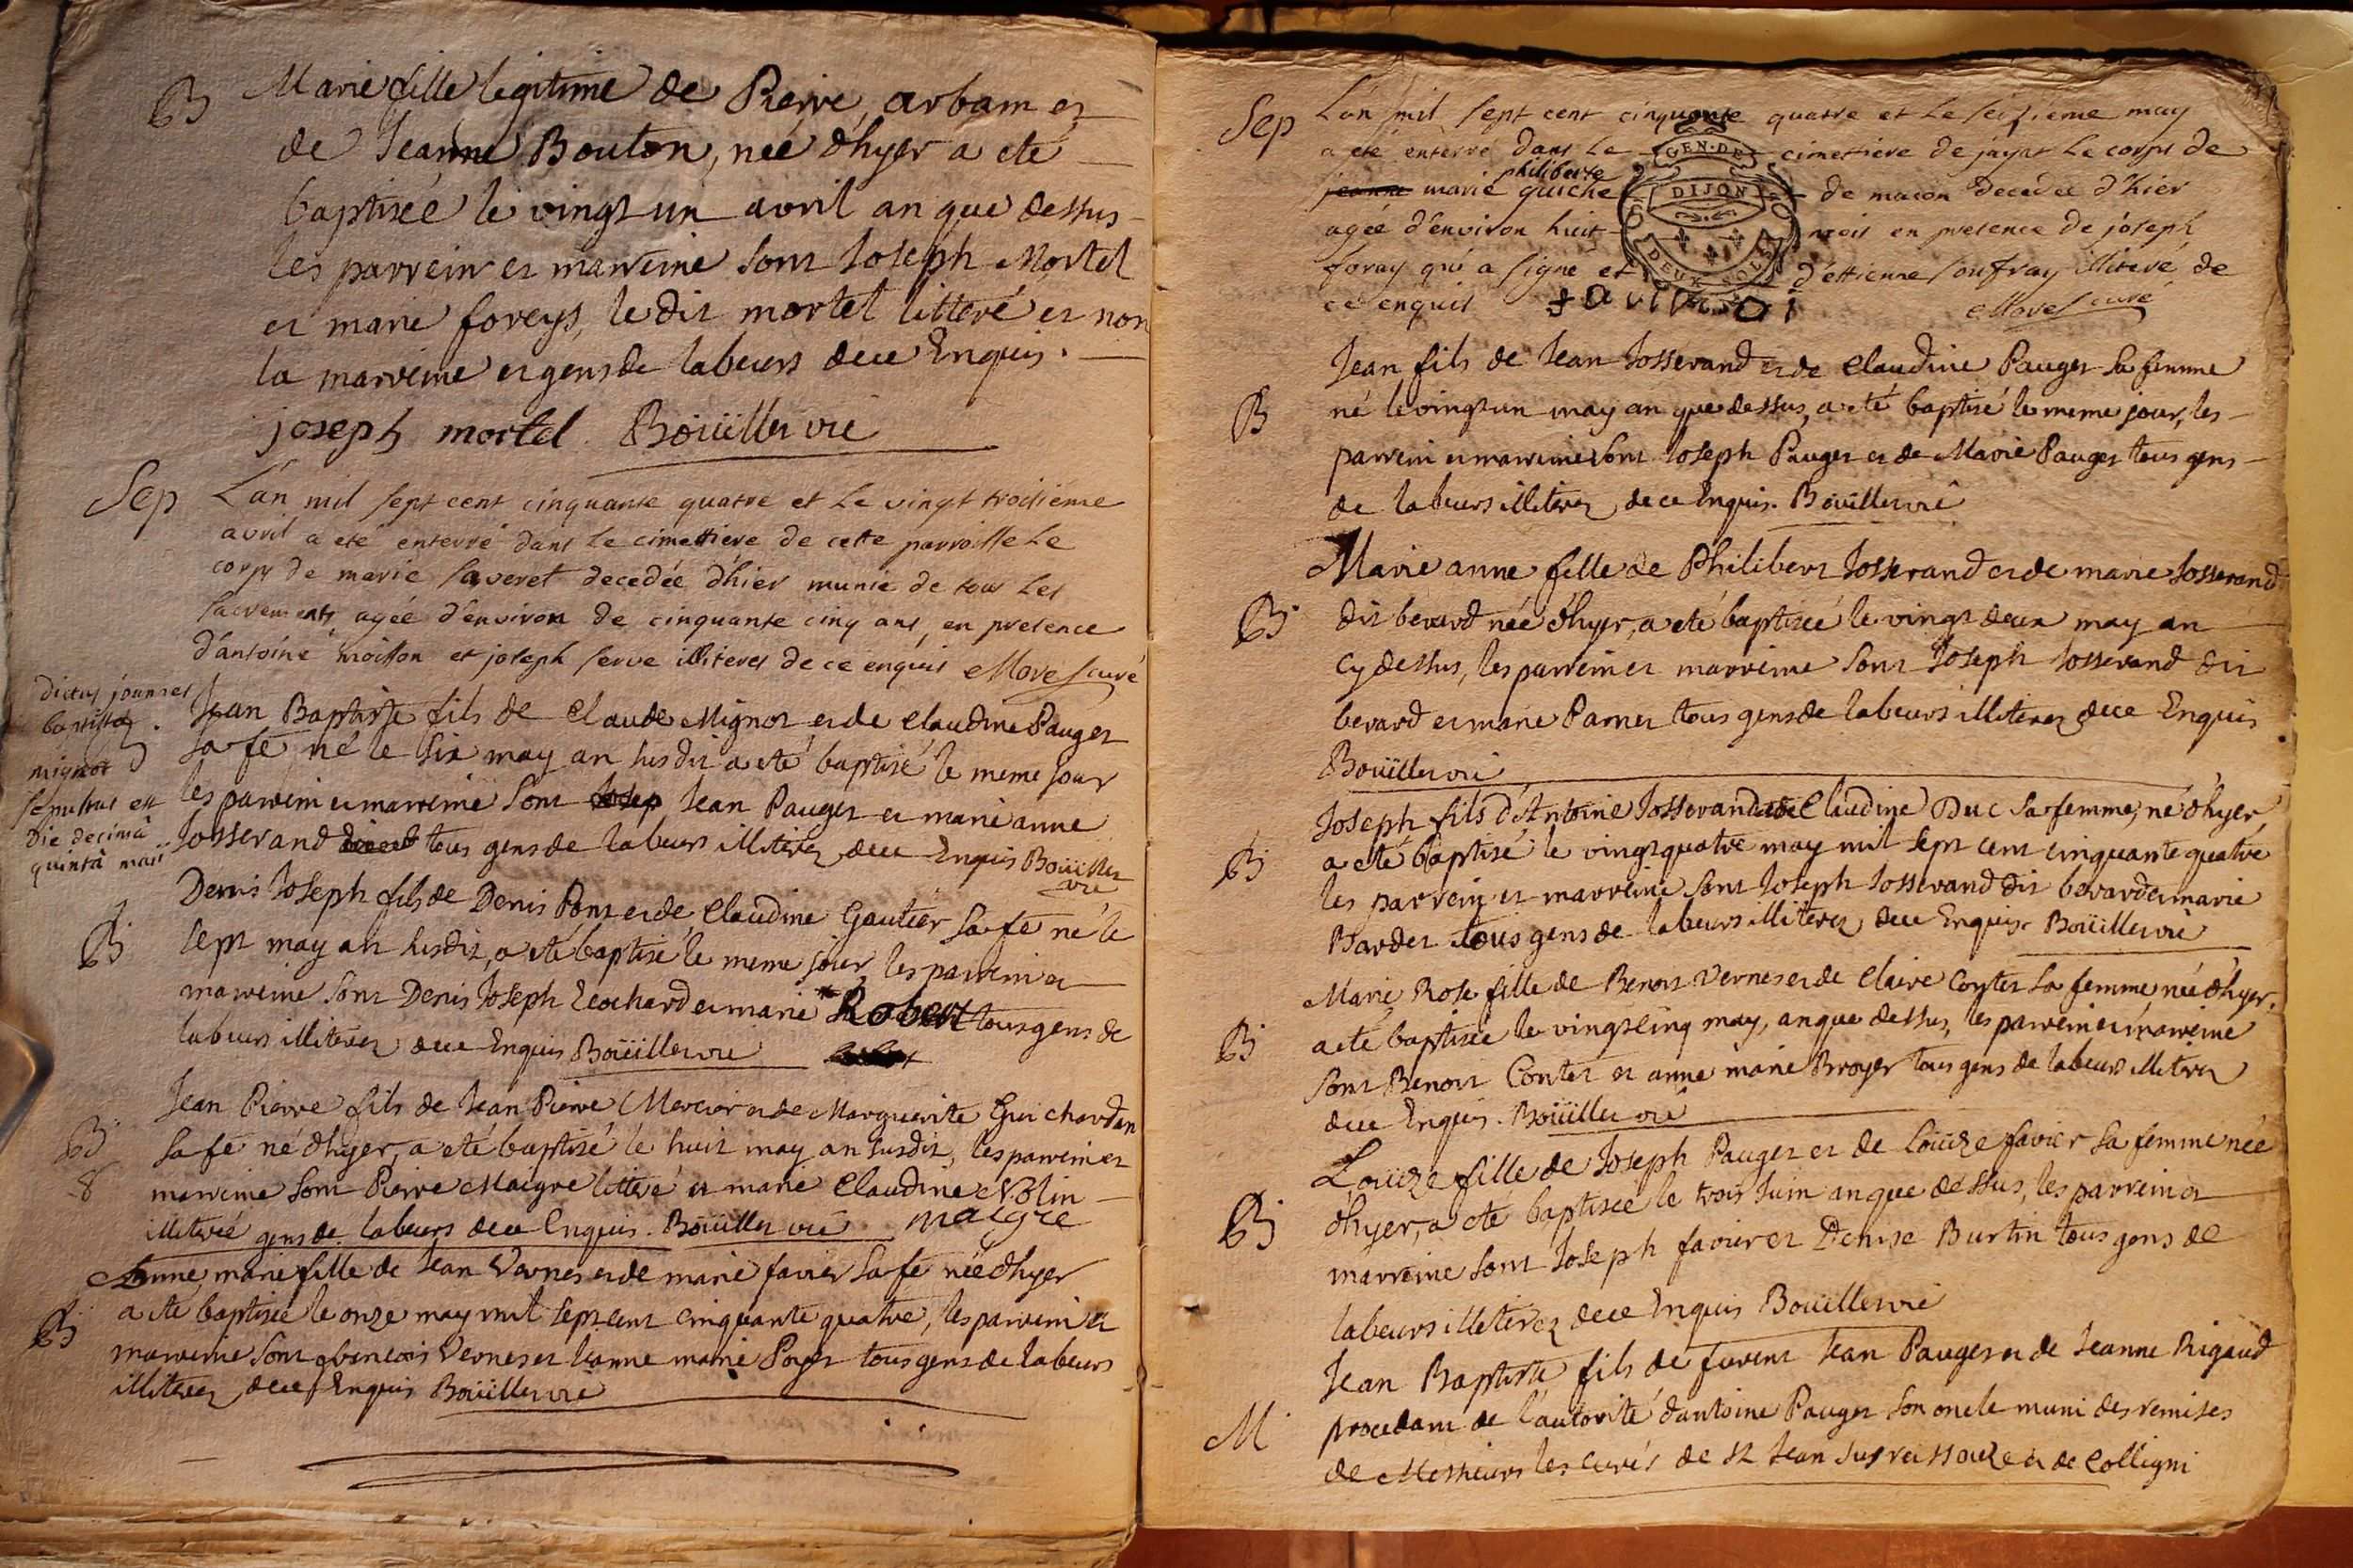 B Marie fille legitime de Pierre arbam et
de Jeanne Bouton, née d'hyer a eté
baptisée le vingt un avril an que dessus
les parrein et marreine sont Joseph Mortel
et marie foreys, le dit mortel litteré et non
la marreine et gens de labeurs de ce Enquis.
joseph mortel Boüiller vic
Sep L'an mil sept cent cinquante quatre et Le vingt troisieme
avril a eté enterré dans Le cimettiere de cette parroisse Le
corps de marie Saveret decedée d'hier munie de tous Les
sacrements agée d'environ de cinquante cinq ans, en presence
d'antoine moisson et joseph serve illiteres de ce enquis Morel curé
dictus joannes
baptista
mignot
sepultus est
die decimâ
quintâ maii
Jean Baptiste fils de Claude Mignot et de Claudine Pauget
sa fe né le six may an susdit a eté baptisé le meme jour
les parrein et marreine sont Josep Jean Pauget et marie anne
Josserand tous gens de labeurs illiterez de ce Enquis Boüiller
vic
Denis Joseph fils de Denis Pont et de Claudine Gautier sa fe né le
B sept may an susdit, a eté baptisé le meme jour, les parrein et
marreine sont Denis Joseph et marie Robert tous gens de
labeurs illiterez de ce Enquis Boüiller vic
Jean Pierre fils de Jean Pierre Mercier et de Marguerite Guichardan
B sa fe né d'hyer, a eté baptisé le huit may an susdit, les parrein et
8 marreine sont Pierre Maigre litteré et marie Claudine Nolin
illiterée gens de labeurs de ce Enquis. Boüiller vic maigre
Anne marie fille de Jean Vernes et de marie favier sa fe née d'hyer
B a eté baptisée le onze may mil sept cent cinquante quatre, les parrein et
marreine sont francois Vernes et Jeanne marie Poget tous gens de labeurs
illiterez, de ce Enquis Boüiller vic
Sep L'an mil sept cent cinquante quatre et Le seizieme may
a eté enterré dans Le cimettiere de jayat Le corps de
philiberte
jeanne marie guiche de macon decedée d'hier
agée d'environ huit mois en presence de joseph
foray qui a signé et d'ettienne soufray illiteré de
ce enquis Morel curé
GEN. DE
DIJON
DEUX SOLS
Jean fils de Jean Josserand et de Claudine Pauget sa femme
B né le vingt un may an que dessus, a eté baptisé le meme jour, les
parrein et marreine sont Joseph Pauget et de Marie Pauget tous gens
de labeurs illiterez, de ce Enquis. Boüiller vic
Marie anne fille de Philibert Josserand et de marie Josserand
B dit bevard née d'hyer, a eté baptisée le vingt deux may an
cy dessus, les parrein et marreine sont Joseph Josserand dit
bevard et marie Parner tous gens de labeurs illiterez de ce Enquis
Boüiller vic
Joseph fils d'Antoine Josserand et de Claudine Duc sa femme, né d'hyer,
B a eté baptisé le vingt quatre may mil sept cent cinquante quatre
les parrein et marreine sont Joseph Josserand dit bevard et marie
Bardet tous gens de labeurs illiterez, de ce Enquis Boüiller vic
Marie Rose fille de Benoit Vernes et de Claire Contet sa femme née d'hyer,
B a eté baptisée le vingt cinq may, an que dessus, les parrein et marreine
sont Benoit Contet et anne marie Broyer tous gens de labeurs illiterez
de ce Enquis. Boüiller vic
Loüize fille de Joseph Pauget et de Loüize favier sa femme née
B d'hyer, a eté baptisée le trois Juin an que dessus, les parrein et
marreine sont Joseph favier et Denise Burtin tous gens de
labeurs illiterez de ce Enquis Boüiller vic
Jean Baptiste fils de furent Jean Pauget et de Jeanne Rigaud
M procedant de l'autorité d'antoine Pauget son oncle muni des remises
de Messieurs les curés de St Jean sus reissouze et de Colligni